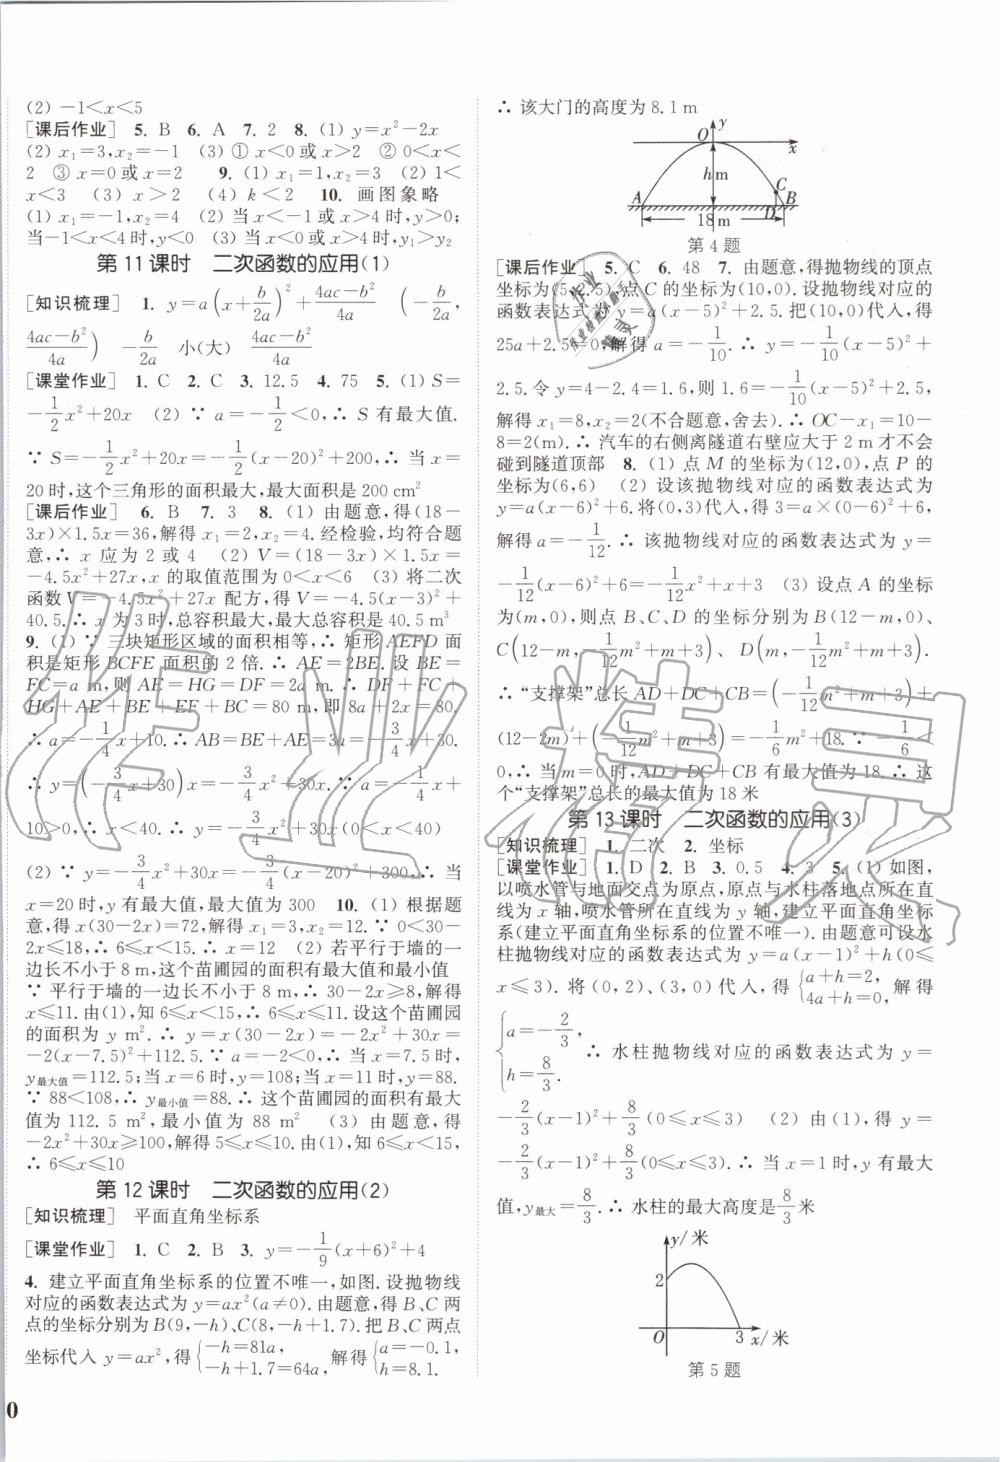 (2) －1＜x＜5
[课后作业] 5. B 6. A 7. 2 8. (1) y=x²－2x
(2) x₁=3,x₂=－1 (3) ① x＜0或x＞2 ② 0＜x＜
2 ③ x=0或x=2 9. (1) x₁=1,x₂=3 (2) 1＜
x＜3 (3) x＞2 (4) k＜2 10. 画图象略
(1) x₁=－1,x₂=4 (2) 当x＜－1或x＞4时,y＞0;
当－1＜x＜4时,y＜0 (3) 当x＜0或x＞4时,y₁＞y₂
第 11 课时 二次函数的应用(1)
[知识梳理] 1. y=a(x+b/2a)²+(4ac－b²)/4a (－b/2a,
(4ac－b²)/4a) －b/2a 小(大) (4ac－b²)/4a
[课堂作业] 1. C 2. C 3. 12.5 4. 75 5. (1) S=
－1/2x²+20x (2) ∵ a=－1/2＜0,∴ S 有最大值.
∵ S=－1/2x²+20x=－1/2(x－20)²+200,∴ 当 x=
20时,这个三角形的面积最大,最大面积是200 cm²
[课后作业] 6. B 7. 3 8. (1) 由题意,得(18－
3x)×1.5x=36,解得 x₁=2,x₂=4. 经检验,均符合题
意,∴ x 应为 2 或 4 (2) V=(18－3x)×1.5x=
－4.5x²+27x,x 的取值范围为0＜x＜6 (3) 将二次
函数V=－4.5x²+27x 配方,得 V=－4.5(x－3)²+
40.5.∴ x 为 3 时,总容积最大,最大总容积是40.5 m³
9. (1) ∵ 三块矩形区域的面积相等,∴ 矩形 AEFD 面
积是矩形 BCFE 面积的 2 倍.∴ AE=2BE. 设 BE=
FC=a m,则 AE=HG=DF=2a m.∴ DF+FC+
HG+AE+BE+EF+BC=80 m,即 8a+2x=80.
∴ a=－1/4x+10.∴ AB=BE+AE=3a=－3/4x+30.
∴ y=(－3/4x+30)x=－3/4x²+30x.∵ a=－1/4x+
10＞0,∴ x＜40.∴ y=－3/4x²+30x(0＜x＜40)
(2) ∵ y=－3/4x²+30x=－3/4(x－20)²+300,∴ 当
x=20时,y有最大值,最大值为 300 10. (1) 根据题
意,得x(30－2x)=72,解得x₁=3,x₂=12.∵ 0＜30－
2x≤18,∴ 6≤x＜15.∴ x=12 (2) 若平行于墙的一
边长不小于 8 m,这个苗圃园的面积有最大值和最小值
∵ 平行于墙的一边长不小于 8 m,∴ 30－2x≥8,解得
x≤11.由(1),知 6≤x＜15,∴ 6≤x≤11.设这个苗圃园
的面积为 y m².∴ y=x(30－2x)=－2x²+30x=
－2(x－7.5)²+112.5.∵ a=－2＜0,∴ 当 x=7.5时,
y最大值=112.5;当x=6时,y=108;当x=11时,y=88.
∵ 88＜108,∴ y最小值=88.∴ 这个苗圃园的面积有最大
值为 112.5 m²,最小值为 88 m² (3) 由题意,得
－2x²+30x≥100,解得5≤x≤10.由(1),知 6≤x＜15,
∴ 6≤x≤10
第 12 课时 二次函数的应用(2)
[知识梳理] 平面直角坐标系
[课堂作业] 1. C 2. B 3. y=－1/9(x+6)²+4
4. 建立平面直角坐标系的位置不唯一,如图.设抛物线
对应的函数表达式为 y=ax²(a≠0).由题意,得 B、C 两
点的坐标分别为 B(9,－h)、C(8,－h+1.7).把 B、C 两点
坐标代入 y=ax²,得{－h=81a, －h+1.7=64a, 解得{a=－0.1, h=8.1.
0
∴ 该大门的高度为 8.1 m
y
O
x
h m
A
C
D
B
18 m
第 4 题
[课后作业] 5. C 6. 48 7. 由题意,得抛物线的顶点
坐标为(5,2.5),点 C 的坐标为(10,0).设抛物线对应的
函数表达式为 y=a(x－5)²+2.5.把(10,0)代入,得
25a+2.5=0,解得 a=－1/10.∴ y=－1/10(x－5)²+
2.5.令 y=4－2.4=1.6,则 1.6=－1/10(x－5)²+2.5,
解得 x₁=8,x₂=2(不合题意,舍去).∴ OC－x₁=10－
8=2(m).∴ 汽车的右侧离隧道右壁应大于 2 m才不会
碰到隧道顶部 8. (1) 点 M 的坐标为(12,0),点 P 的
坐标为(6,6) (2) 设该抛物线对应的函数表达式为
y=a(x－6)²+6.将(0,3)代入,得 3=a×(0－6)²+6,
解得 a=－1/12.∴ 该抛物线对应的函数表达式为 y=
－1/12(x－6)²+6=－1/12x²+x+3 (3) 设点 A 的坐标
为(m,0),则点 B、C、D 的坐标分别为 B(12－m,0)、
C(12－m,－1/12m²+m+3)、D(m,－1/12m²+m+3).
∴ “支撑架”总长 AD+DC+CB=(－1/12m²+m+3)+
(12－2m)+(－1/12m²+m+3)=－1/6m²+18.∵ －1/6＜
0,∴ 当 m=0 时,AD+DC+CB 有最大值为 18.∴ 这
个“支撑架”总长的最大值为 18 米
第 13 课时 二次函数的应用(3)
[知识梳理] 1. 二次 2. 坐标
[课堂作业] 1. D 2. B 3. 0.5 4. 3 5. (1) 如图,
以喷水管与地面交点为原点,原点与水柱落地点所在直
线为 x 轴,喷水管所在直线为 y 轴,建立平面直角坐标
系(建立平面直角坐标系的位置不唯一).由题意可设水
柱抛物线对应的函数表达式为 y=a(x－1)²+h(0≤
x≤3). 将(0,2)、(3,0)代入,得{a+h=2, 4a+h=0, 解得
{a=－2/3, h=8/3. ∴ 水柱抛物线对应的函数表达式为 y=
－2/3(x－1)²+8/3(0≤x≤3) (2) 由(1),得 y=
－2/3(x－1)²+8/3(0≤x≤3).∴ 当 x=1 时,y 有最大
值,y最大=8/3.∴ 水柱的最大高度是8/3米
y/米
2
O
3
x/米
第 5 题
作业精灵